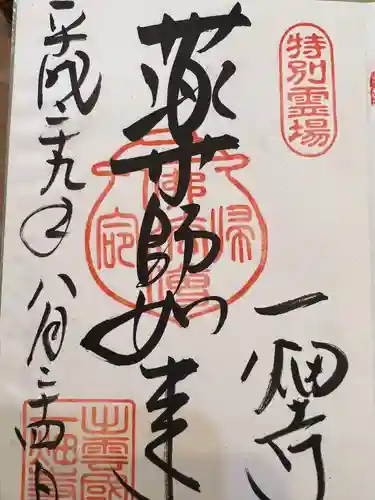 特別霊場
一畑寺
薬師如来
平成二十九年
八月二十四日
出雲國
一畑寺